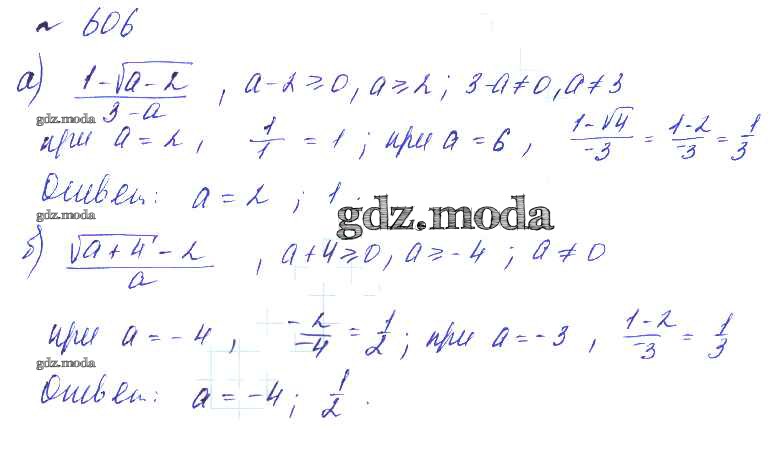 ~ 606
а) (1-√(a-2))/(3-a), a-2⩾0, a⩾2; 3-a≠0, a≠3
gdz.moda
при a=2, 1/1=1; при a=6, (1-√4)/(-3)=(1-2)/(-3)=1/3
Ответ: a=2; 1.
gdz.moda
gdz.moda
б) (√(a+4)-2)/a, a+4⩾0, a⩾-4; a≠0
при a=-4, (-2)/(-4)=1/2; при a=-3, (1-2)/(-3)=1/3
gdz.moda
Ответ: a=-4; 1/2.